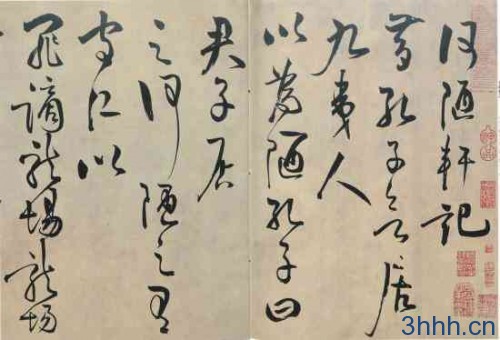 何陋軒記
昔孔子欲居
九夷人
以為陋孔子曰
君子居
之何陋之有
守仁以
罪謫龍場龍場
3hhh.cn